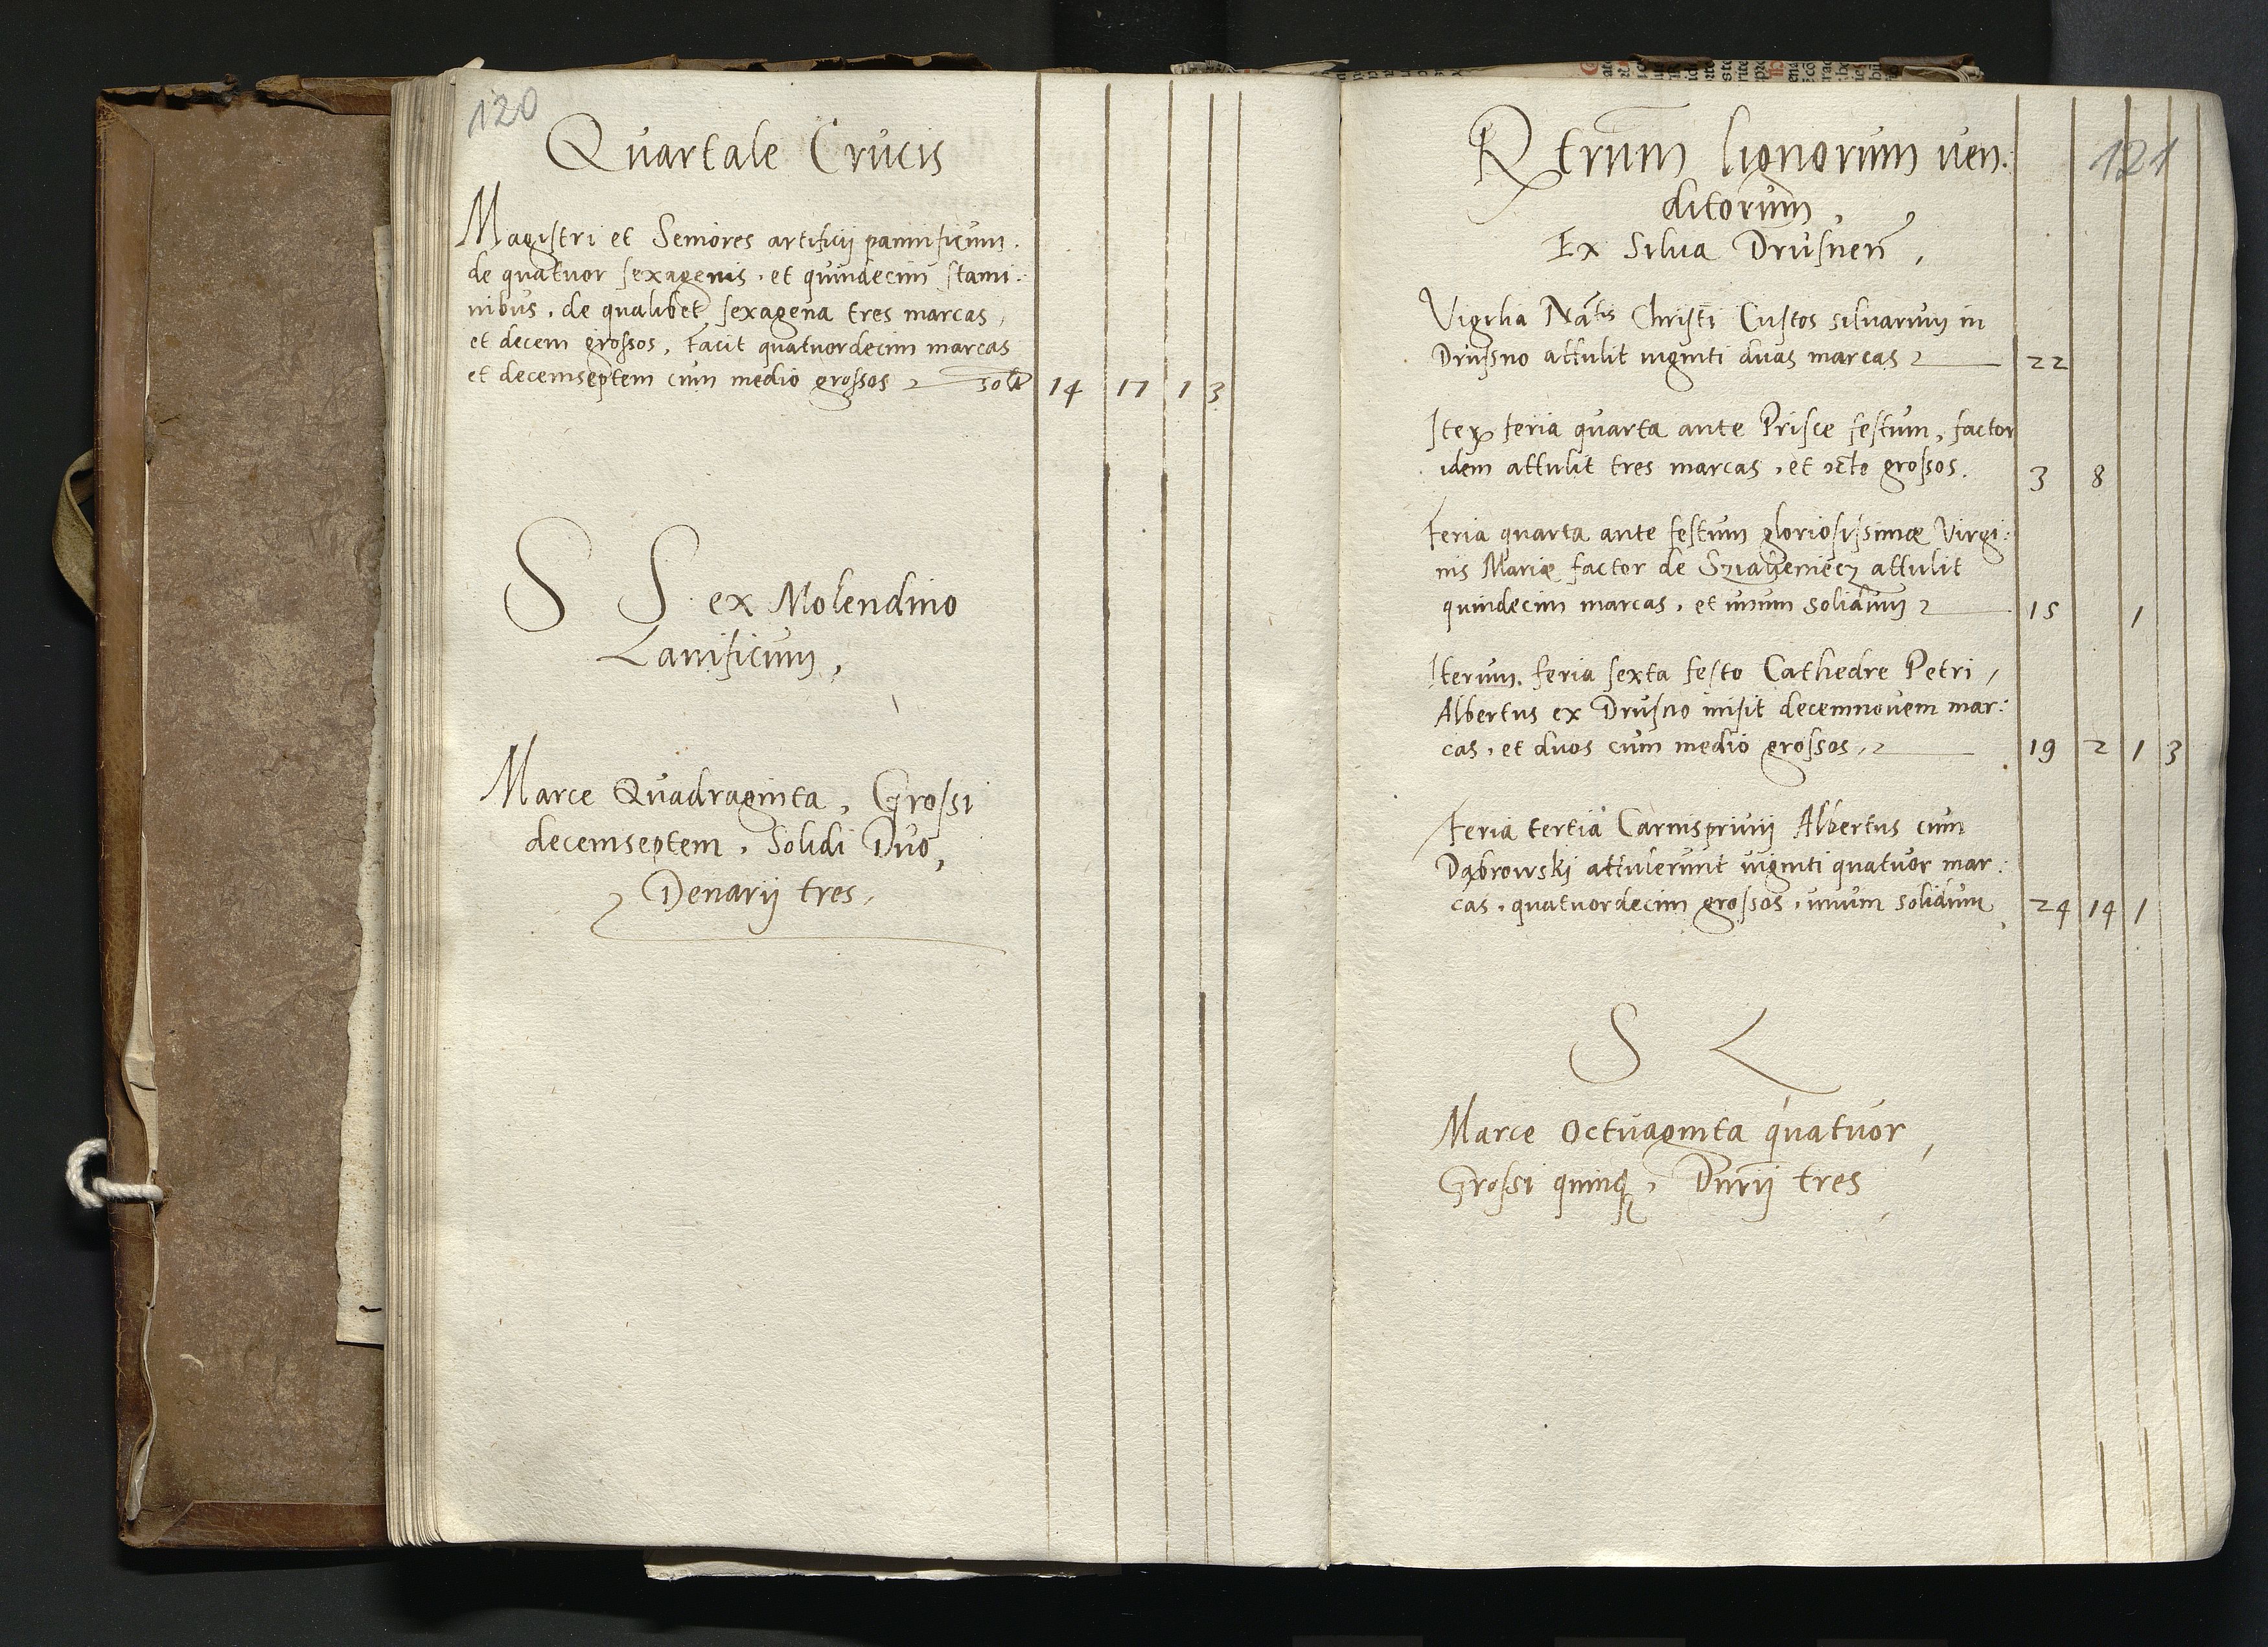 120
Quartale Crucis
Magistri et Seniores artificij pannificum.
de quatuor sexagenis, et quindecim stami:
nibus, de qualibet sexagena tres marcas,
et decem grossos, facit quatuordecim marcas
et decemseptem cum medio grossos 14 17 1 3
S S ex Molendino
Lanificum,
Marce Quadraginta, Grossi
decemseptem, Solidi Duo,
Denarij tres,
121
lignorum ven:
ditorum,
Ex Silva Drusnen̄,
Vigilia Natis Christi Custos silvarum in
Drusno attulit viginti duas marcas 22
Item feria quarta ante Prisce festum, factor
idem attulit tres marcas, et octo grossos. 3 8
Feria quarta ante festum gloriosissimæ Virgi:
nis Mariæ factor de attulit
quindecim marcas, et unum solidum 15 1
Iterum. feria sexta festo Cathedre Petri,
Albertus ex Drusno misit decemnovem mar:
cas, et duos cum medio grossos, 19 2 1 3
Feria tertia Carnisprivij Albertus cum
Dąbrowskj attulerunt viginti quatuor mar:
cas, quatuordecim grossos, unum solidum 24 14 1
S L
Marce Octuaginta quatuor,
Grossi quinq, Dnrij tres